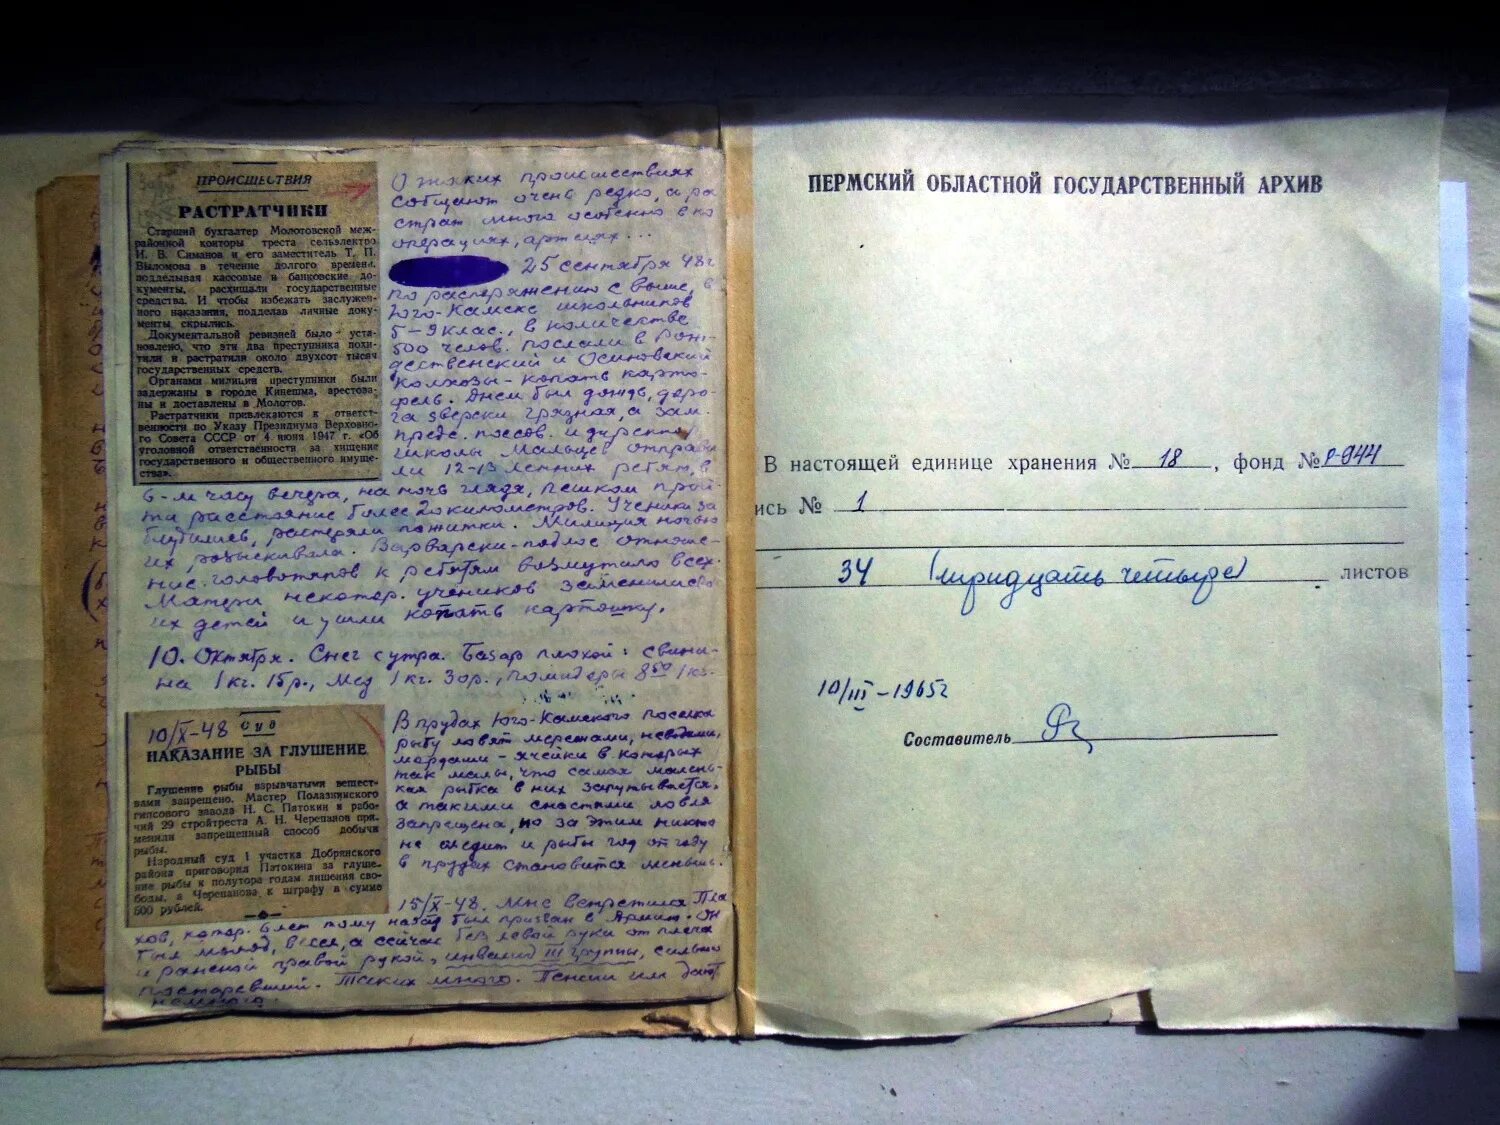 ПРОИСШЕСТВИЯ
РАСТРАТЧИКИ
Старший бухгалтер Молотовской меж-
районной конторы треста сельэлектро
И. В. Симанов и его заместитель Т. П.
Выломова в течение долгого времени,
подделывая кассовые и банковские до-
кументы, расхищали государственные
средства. И чтобы избежать заслужен-
ного наказания, подделав личные доку-
менты скрылись.
Документальной ревизией было уста-
новлено, что эти два преступника похи-
тили и растратили около двухсот тысяч
государственных средств.
Органами милиции преступники были
задержаны в городе Кинешма, арестова-
ны и доставлены в Молотов.
Растратчики привлекаются к ответст-
венности по Указу Президиума Верховно-
го Совета СССР от 4 июня 1947 г. «Об
уголовной ответственности за хищение
государственного и общественного имуще-
ства».
О таких происшествиях
собщают очень редко, а ра
страт много особенно в ко
операциях, артелях...
25 сентября 48 г
по распоряжению с выше, в
Юго-Камске школьников
5-9 клас., в количестве
500 челов. послали в Рож
дественский и Осиновский
колхозы - копать карто-
фель. Днем был дождь, доро-
га зверски грязная, а зам.
пред. поссов. и директор
школы Мальцев отправи
ли 12-13 летних ребят, в
6-м часу вечера, на ночь глядя, пешком прой-
ти расстояние более 20 километров. Ученики за
блудились, растеряли пожитки. Милиция ночью
их разыскивала. Варварски-подлое отноше-
ние головотяпов к ребятам возмутило всех.
Матери некотор. учеников заменили
их детей и ушли копать картошку.
10. Октября. Снег с утра. Базар плохой: свини-
на 1 кг. 15 р., мед 1 кг. 30 р., помидоры 8 50 1 кг.
10/X-48 Суд
НАКАЗАНИЕ ЗА ГЛУШЕНИЕ
РЫБЫ
Глушение рыбы взрывчатыми вещест-
вами запрещено. Мастер Полазнинского
гипсового завода Н. С. Пятокин и рабо-
чий 29 стройтреста А. Н. Черепанов при-
менили запрещенный способ добычи
рыбы.
Народный суд 1 участка Добрянского
района приговорил Пятокина за глуше-
ние рыбы к полутора годам лишения сво-
боды, а Черепанова к штрафу в сумме
600 рублей.
В прудах Юго-Камского поселка
рыбу ловят мережами, неводами,
мордами - ячейки в которых
так малы, что самая малень-
кая рыбка в них запутывается,
а такими снастями ловля
запрещена, но за этим никто
не следит и рыбы год от году
в прудах становится меньше.
15/X-48. Мне встретился Пла
хов, котор. 6 лет тому назад был призван в Армию. Он
был молод, весел, а сейчас без левой руки от плеча
и раненой правой рукой, инвалид III группы, сильно
постаревший. Таких много. Пенсии им дают
немного.
ПЕРМСКИЙ ОБЛАСТНОЙ ГОСУДАРСТВЕННЫЙ АРХИВ
В настоящей единице хранения № 18, фонд № Р-944
ись № 1
34 (тридцать четыре) листов
10/III-1965 г
Составитель